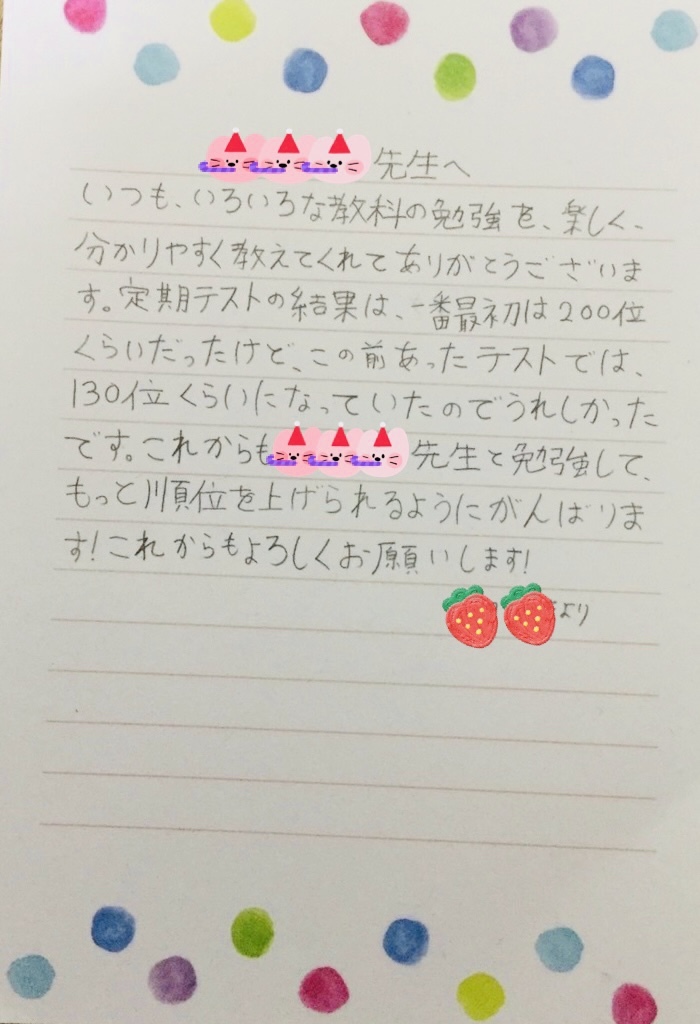 先生へ
いつも、いろいろな教科の勉強を、楽しく、
分かりやすく教えてくれてありがとうございま
す。定期テストの結果は、一番最初は200位
くらいだったけど、この前あったテストでは、
130位くらいになっていたのでうれしかった
です。これからも先生と勉強して、
もっと順位を上げられるようにがんばりま
す!これからもよろしくお願いします!
より